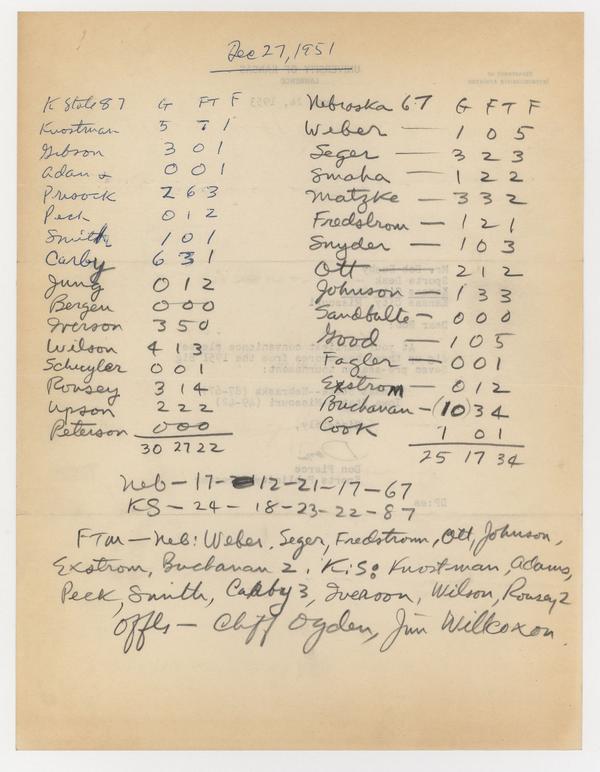 Dec 27, 1951
K State 87 G FT F
Knostman 5 7 1
Gibson 3 0 1
Adams 0 0 1
Prisock 2 6 3
Peck 0 1 2
Smith 1 0 1
Carby 6 3 1
Jung 0 1 2
Bergen 0 0 0
Iverson 3 5 0
Wilson 4 1 3
Schuyler 0 0 1
Rousey 3 1 4
Upson 2 2 2
Peterson 0 0 0
30 27 22
Nebraska 67 G FT F
Weber — 1 0 5
Seger — 3 2 3
Smaha — 1 2 2
Matzke — 3 3 2
Fredstrom — 1 2 1
Snyder — 1 0 3
Ott — 2 1 2
Johnson — 1 3 3
Sandbulte — 0 0 0
Good — 1 0 5
Fagler — 0 0 1
Exstrom 0 1 2
Buchanan — (10) 3 4
Cook 1 0 1
25 17 34
Neb — 17 — 12 — 21 — 17 — 67
KS — 24 — 18 — 23 — 22 — 87
FTM — Neb: Weber, Seger, Fredstrom, Ott, Johnson,
Exstrom, Buchanan 2. K.S: Knostman, Adams,
Peck, Smith, Carby 3, Iverson, Wilson, Rousey 2
Offls — Cliff Ogden, Jim Willcoxon.